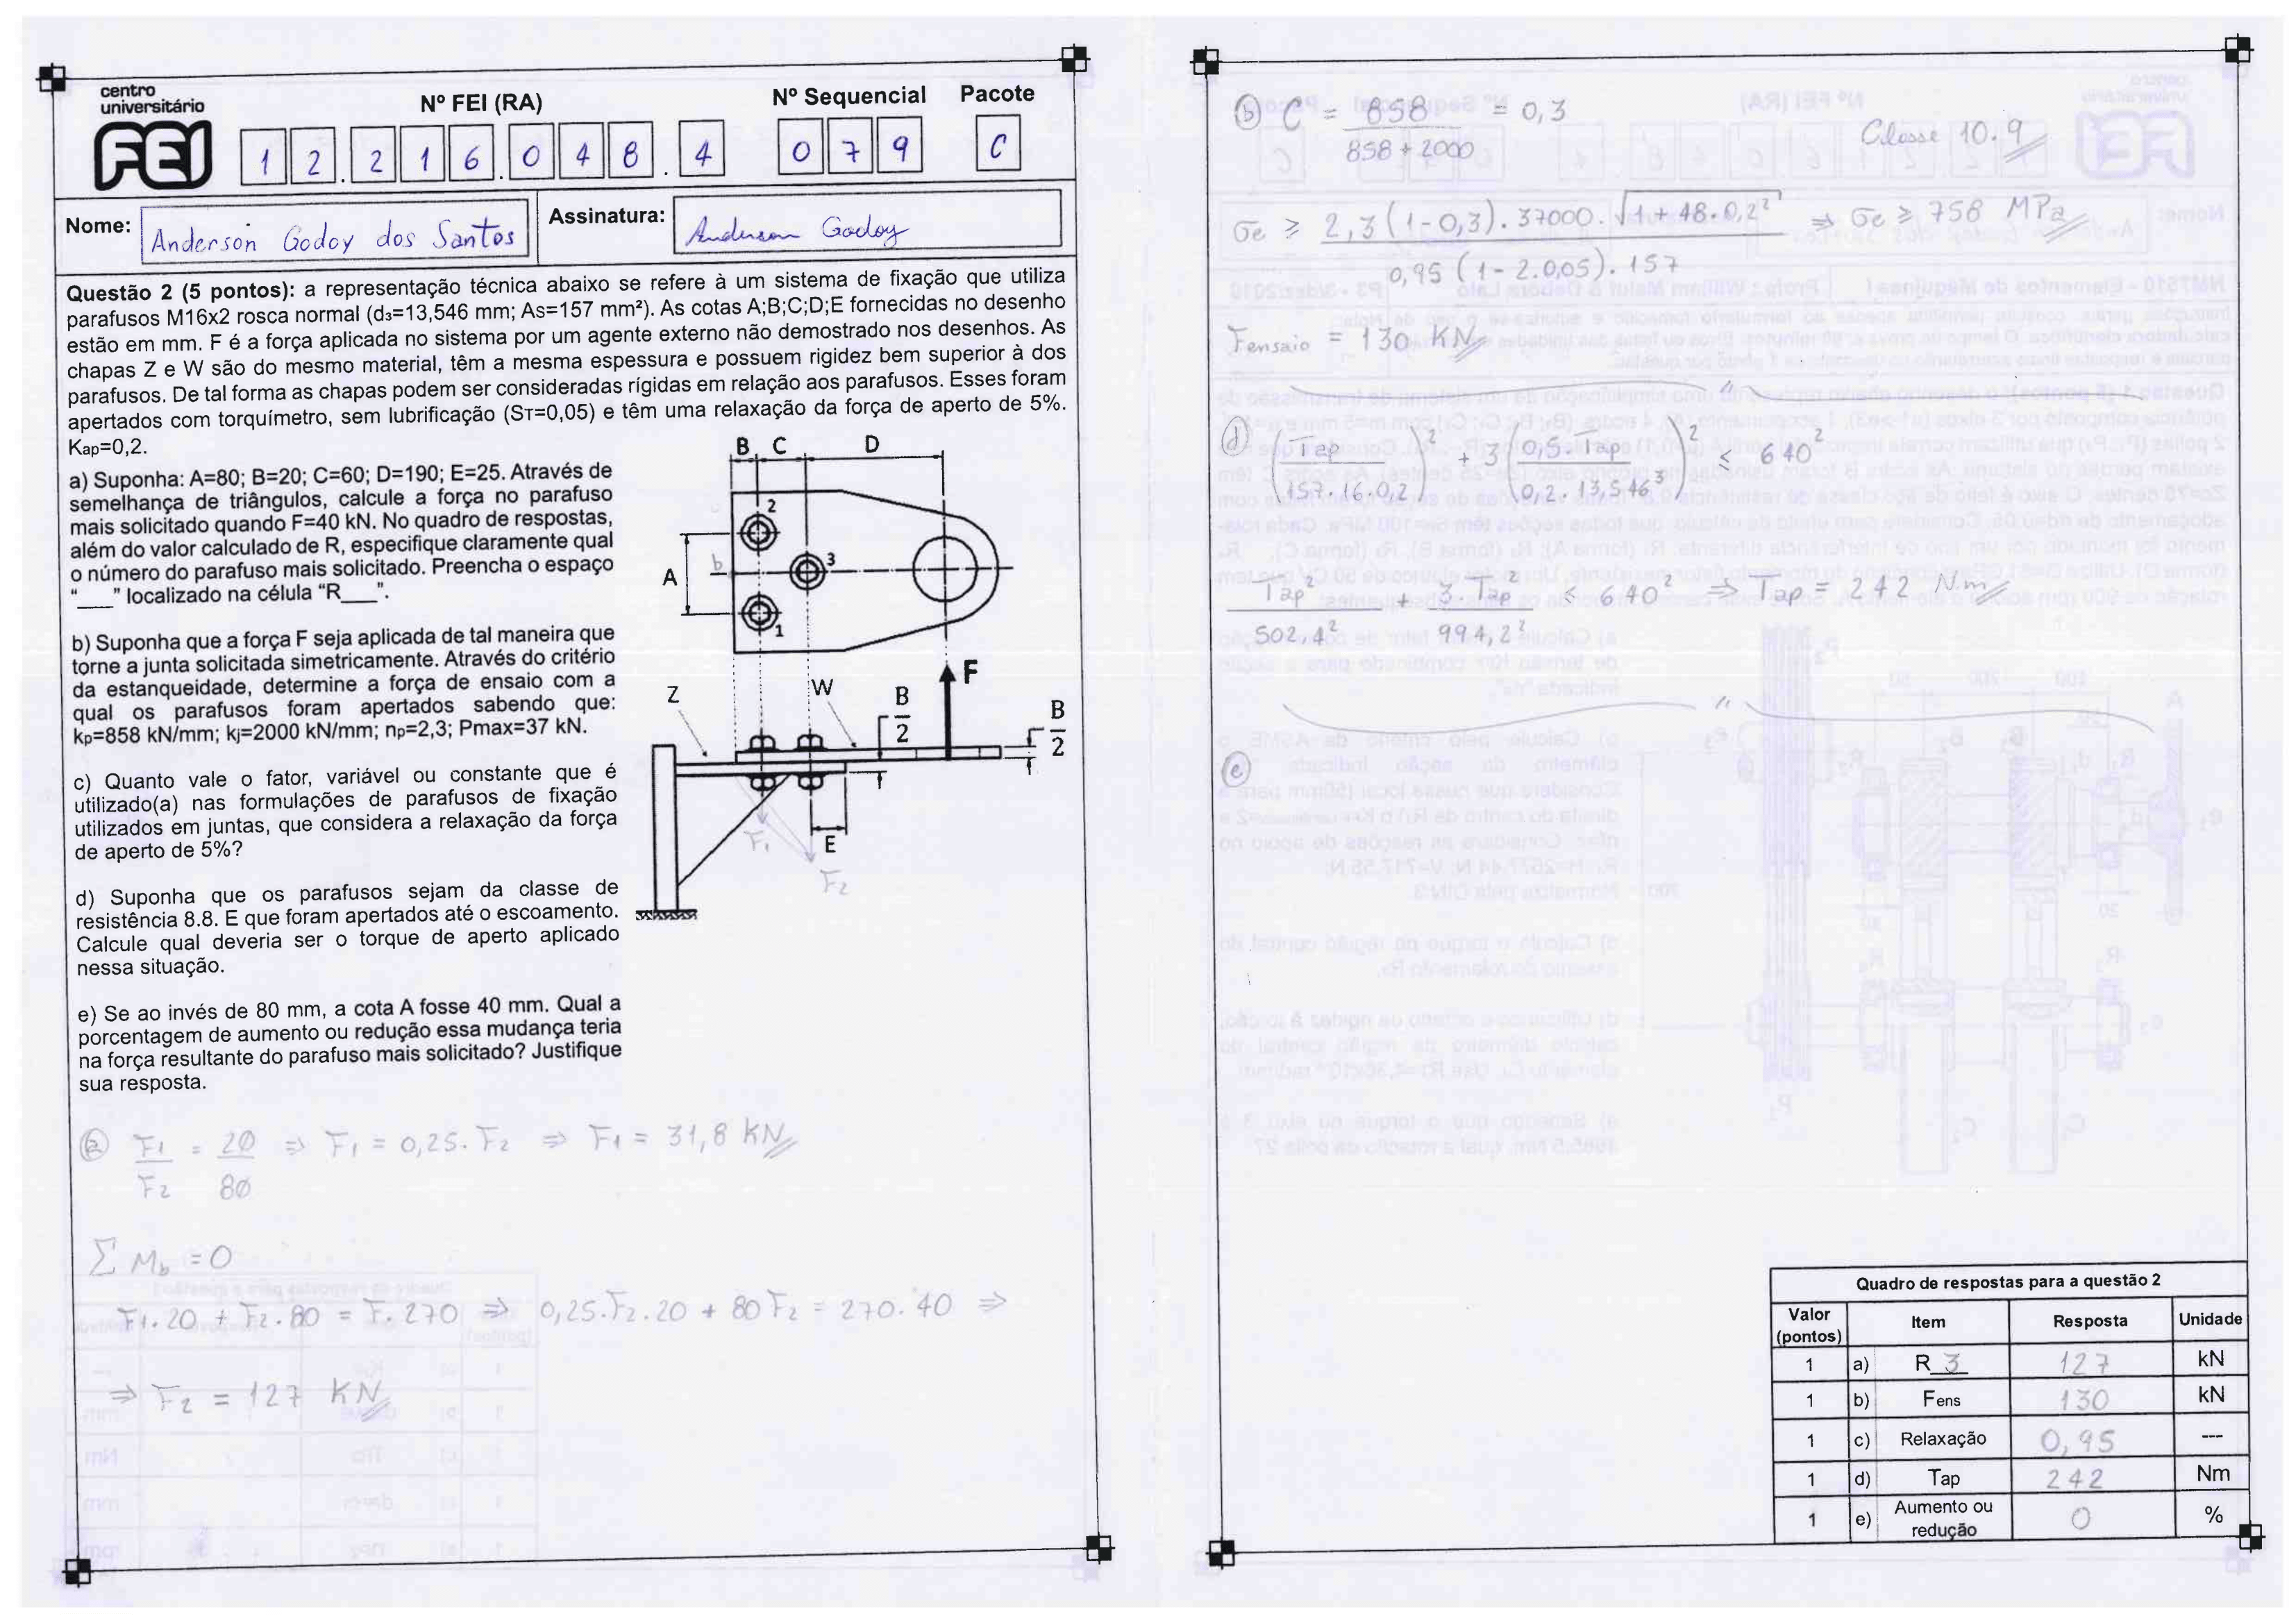 centro
universitário
FEI
Nº FEI (RA)
Nº Sequencial
Pacote
12.216.048.4
079
C
Nome: Anderson Godoy dos Santos
Assinatura: Anderson Godoy
Questão 2 (5 pontos): a representação técnica abaixo se refere à um sistema de fixação que utiliza
parafusos M16x2 rosca normal (d₃=13,546 mm; As=157 mm²). As cotas A;B;C;D;E fornecidas no desenho
estão em mm. F é a força aplicada no sistema por um agente externo não demostrado nos desenhos. As
chapas Z e W são do mesmo material, têm a mesma espessura e possuem rigidez bem superior à dos
parafusos. De tal forma as chapas podem ser consideradas rígidas em relação aos parafusos. Esses foram
apertados com torquímetro, sem lubrificação (Sᴛ=0,05) e têm uma relaxação da força de aperto de 5%.
Kap=0,2.
a) Suponha: A=80; B=20; C=60; D=190; E=25. Através de
semelhança de triângulos, calcule a força no parafuso
mais solicitado quando F=40 kN. No quadro de respostas,
além do valor calculado de R, especifique claramente qual
o número do parafuso mais solicitado. Preencha o espaço
"___" localizado na célula "R___".
b) Suponha que a força F seja aplicada de tal maneira que
torne a junta solicitada simetricamente. Através do critério
da estanqueidade, determine a força de ensaio com a
qual os parafusos foram apertados sabendo que:
kp=858 kN/mm; kj=2000 kN/mm; np=2,3; Pmax=37 kN.
c) Quanto vale o fator, variável ou constante que é
utilizado(a) nas formulações de parafusos de fixação
utilizados em juntas, que considera a relaxação da força
de aperto de 5%?
d) Suponha que os parafusos sejam da classe de
resistência 8.8. E que foram apertados até o escoamento.
Calcule qual deveria ser o torque de aperto aplicado
nessa situação.
e) Se ao invés de 80 mm, a cota A fosse 40 mm. Qual a
porcentagem de aumento ou redução essa mudança teria
na força resultante do parafuso mais solicitado? Justifique
sua resposta.
B C D
2
b
3
A
1
F
Z
W
B/2
B/2
E
F1
F2
(a) F1/F2 = 20/80 ⇒ F1 = 0,25.F2 ⇒ F1 = 31,8 KN
∑ Mb = 0
F1.20 + F2.80 = F.270 ⇒ 0,25.F2.20 + 80F2 = 270.40 ⇒
⇒ F2 = 127 KN
(b) C = 858/(858 + 2000) = 0,3
Classe 10.9
σe ≥ 2,3(1-0,3).37000.√(1+48.0,2²) / 0,95(1-2.0,05).157 ⇒ σe ≥ 758 MPa
Fensaio = 130 KN
(d) (Tap/157.16.0,2)² + 3(0,5.Tap/0,2.13,546³)² ≤ 640²
Tap²/502,4² + 3 Tap²/994,2² ≤ 640² ⇒ Tap = 242 N.m
(e)
Quadro de respostas para a questão 2
Valor (pontos) Item Resposta Unidade
1 a) R 3 127 kN
1 b) Fens 130 kN
1 c) Relaxação 0,95 ---
1 d) Tap 242 Nm
1 e) Aumento ou redução 0 %